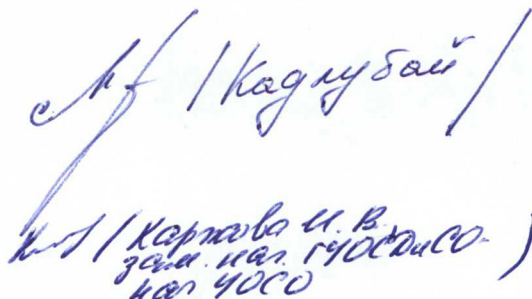 / Кадлубай /
/ Каржова И. В.
зам. нач. ГУОСОиСО-
нач УОСО )